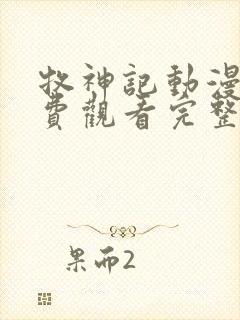 牧神記動漫
費觀看完整
果而2